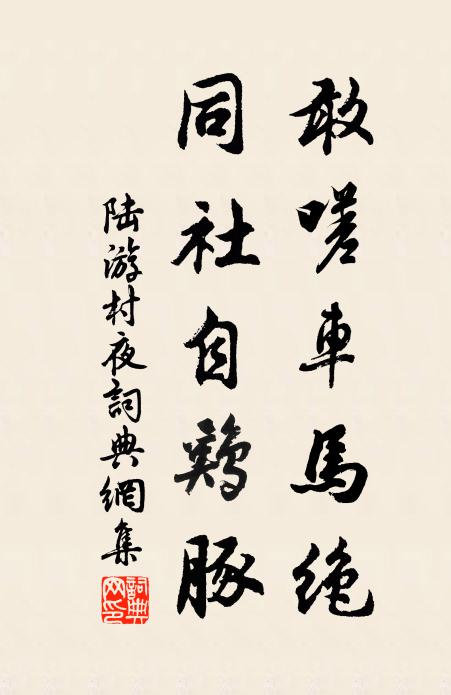 敢嗟車馬絶
同社自鷄豚
陆游村夜詞典網集
詞典網印